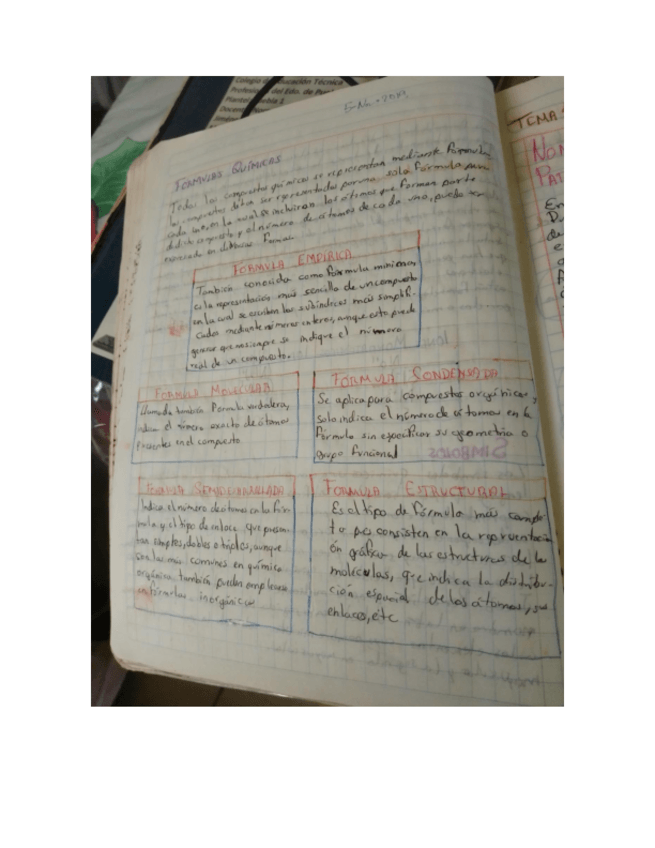 Colegio de Educación Técnica
Profesional del Edo. de
Plantel Puebla 1
FORMULAS QUÍMICAS
Todos los compuestos químicos se representan mediante formulas
los compuestos deben ser representados por una sola fórmula para
cada uno, en la cual se incluiran los átomos que forman parte
dicho compuesto y el número de átomos de cada uno, puede ser
expresado en distintas formas.
FÓRMULA EMPÍRICA
También conocida como fórmula minima,
es la representación más sencilla de un compuesto
en la cual se escriben los subíndices más simplifi-
cados mediante números enteros, aunque esto puede
generar que no siempre se indique el número
real de un compuesto.
FORMULA MOLECULAR
Llamada también formula verdadera,
indica el número exacto de átomos
presentes en el compuesto
FÓRMULA CONDENSADA
Se aplica para compuestos orgánicos,
solo indica el número de átomos en la
fórmula sin especificar su geometría o
grupo funcional
FORMULA SEMIDESARROLLADA
Indica el número de átomos en la fór-
mula y el tipo de enlace que presen-
tan simples, dobles o triples, aunque
son las más comunes en química
orgánica también pueden emplearse
en fórmulas inorgánicas
FORMULA ESTRUCTURAL
Es el tipo de fórmula más comple-
to pes consisten en la representaci-
ón gráfica de las estructuras de las
moléculas, que indica la distribu-
ción espacial de los átomos, sus
enlaces, etc
TEMA